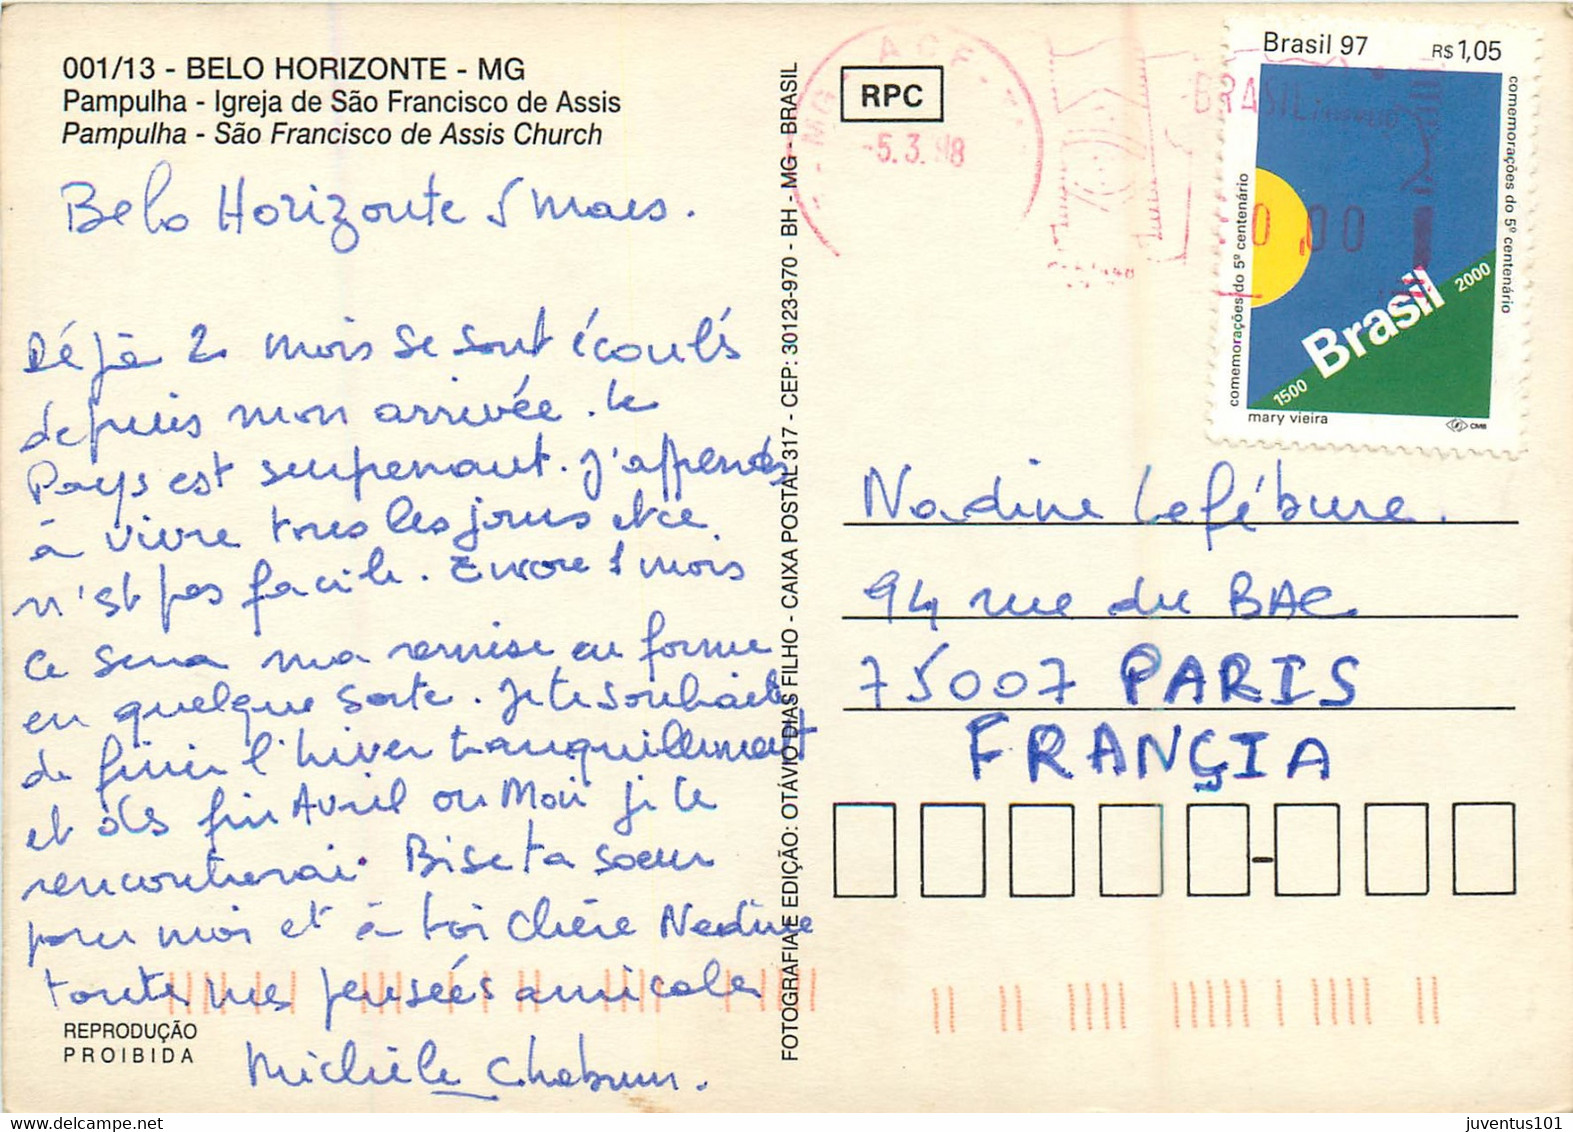 001/13 - BELO HORIZONTE - MG
Pampulha - Igreja de São Francisco de Assis
Pampulha - São Francisco de Assis Church
Belo Horizonte 5 mars.
Déjà 2 mois se sont écoulés
depuis mon arrivée. Le
Pays est surprenant. J'apprends
à vivre tous les jours et ce
n'est pas facile. Encore 1 mois
ce sera ma remise en forme
en quelque sorte. Je te souhaite
de finir l'hiver tranquillement
et dès fin Avril ou Mai je te
rencontrerai. Bise ta soeur
pour moi et à toi chère Nadine
toutes mes pensées amicales
Michèle
REPRODUÇÃO
PROIBIDA
FOTOGRAFIA E EDIÇÃO: OTÁVIO DIAS FILHO - CAIXA POSTAL 317 - CEP: 30123-970 - BH - MG - BRASIL
RPC
MG - ACF
-5.3.98
BRASIL
0,00
Brasil 97 R$ 1,05
comemorações do 5º centenário
comemorações do 5º centenário
1500 Brasil 2000
mary vieira CMB
Nadine Lefébure.
94 rue du BAC
75007 PARIS
FRANÇIA
juventus101